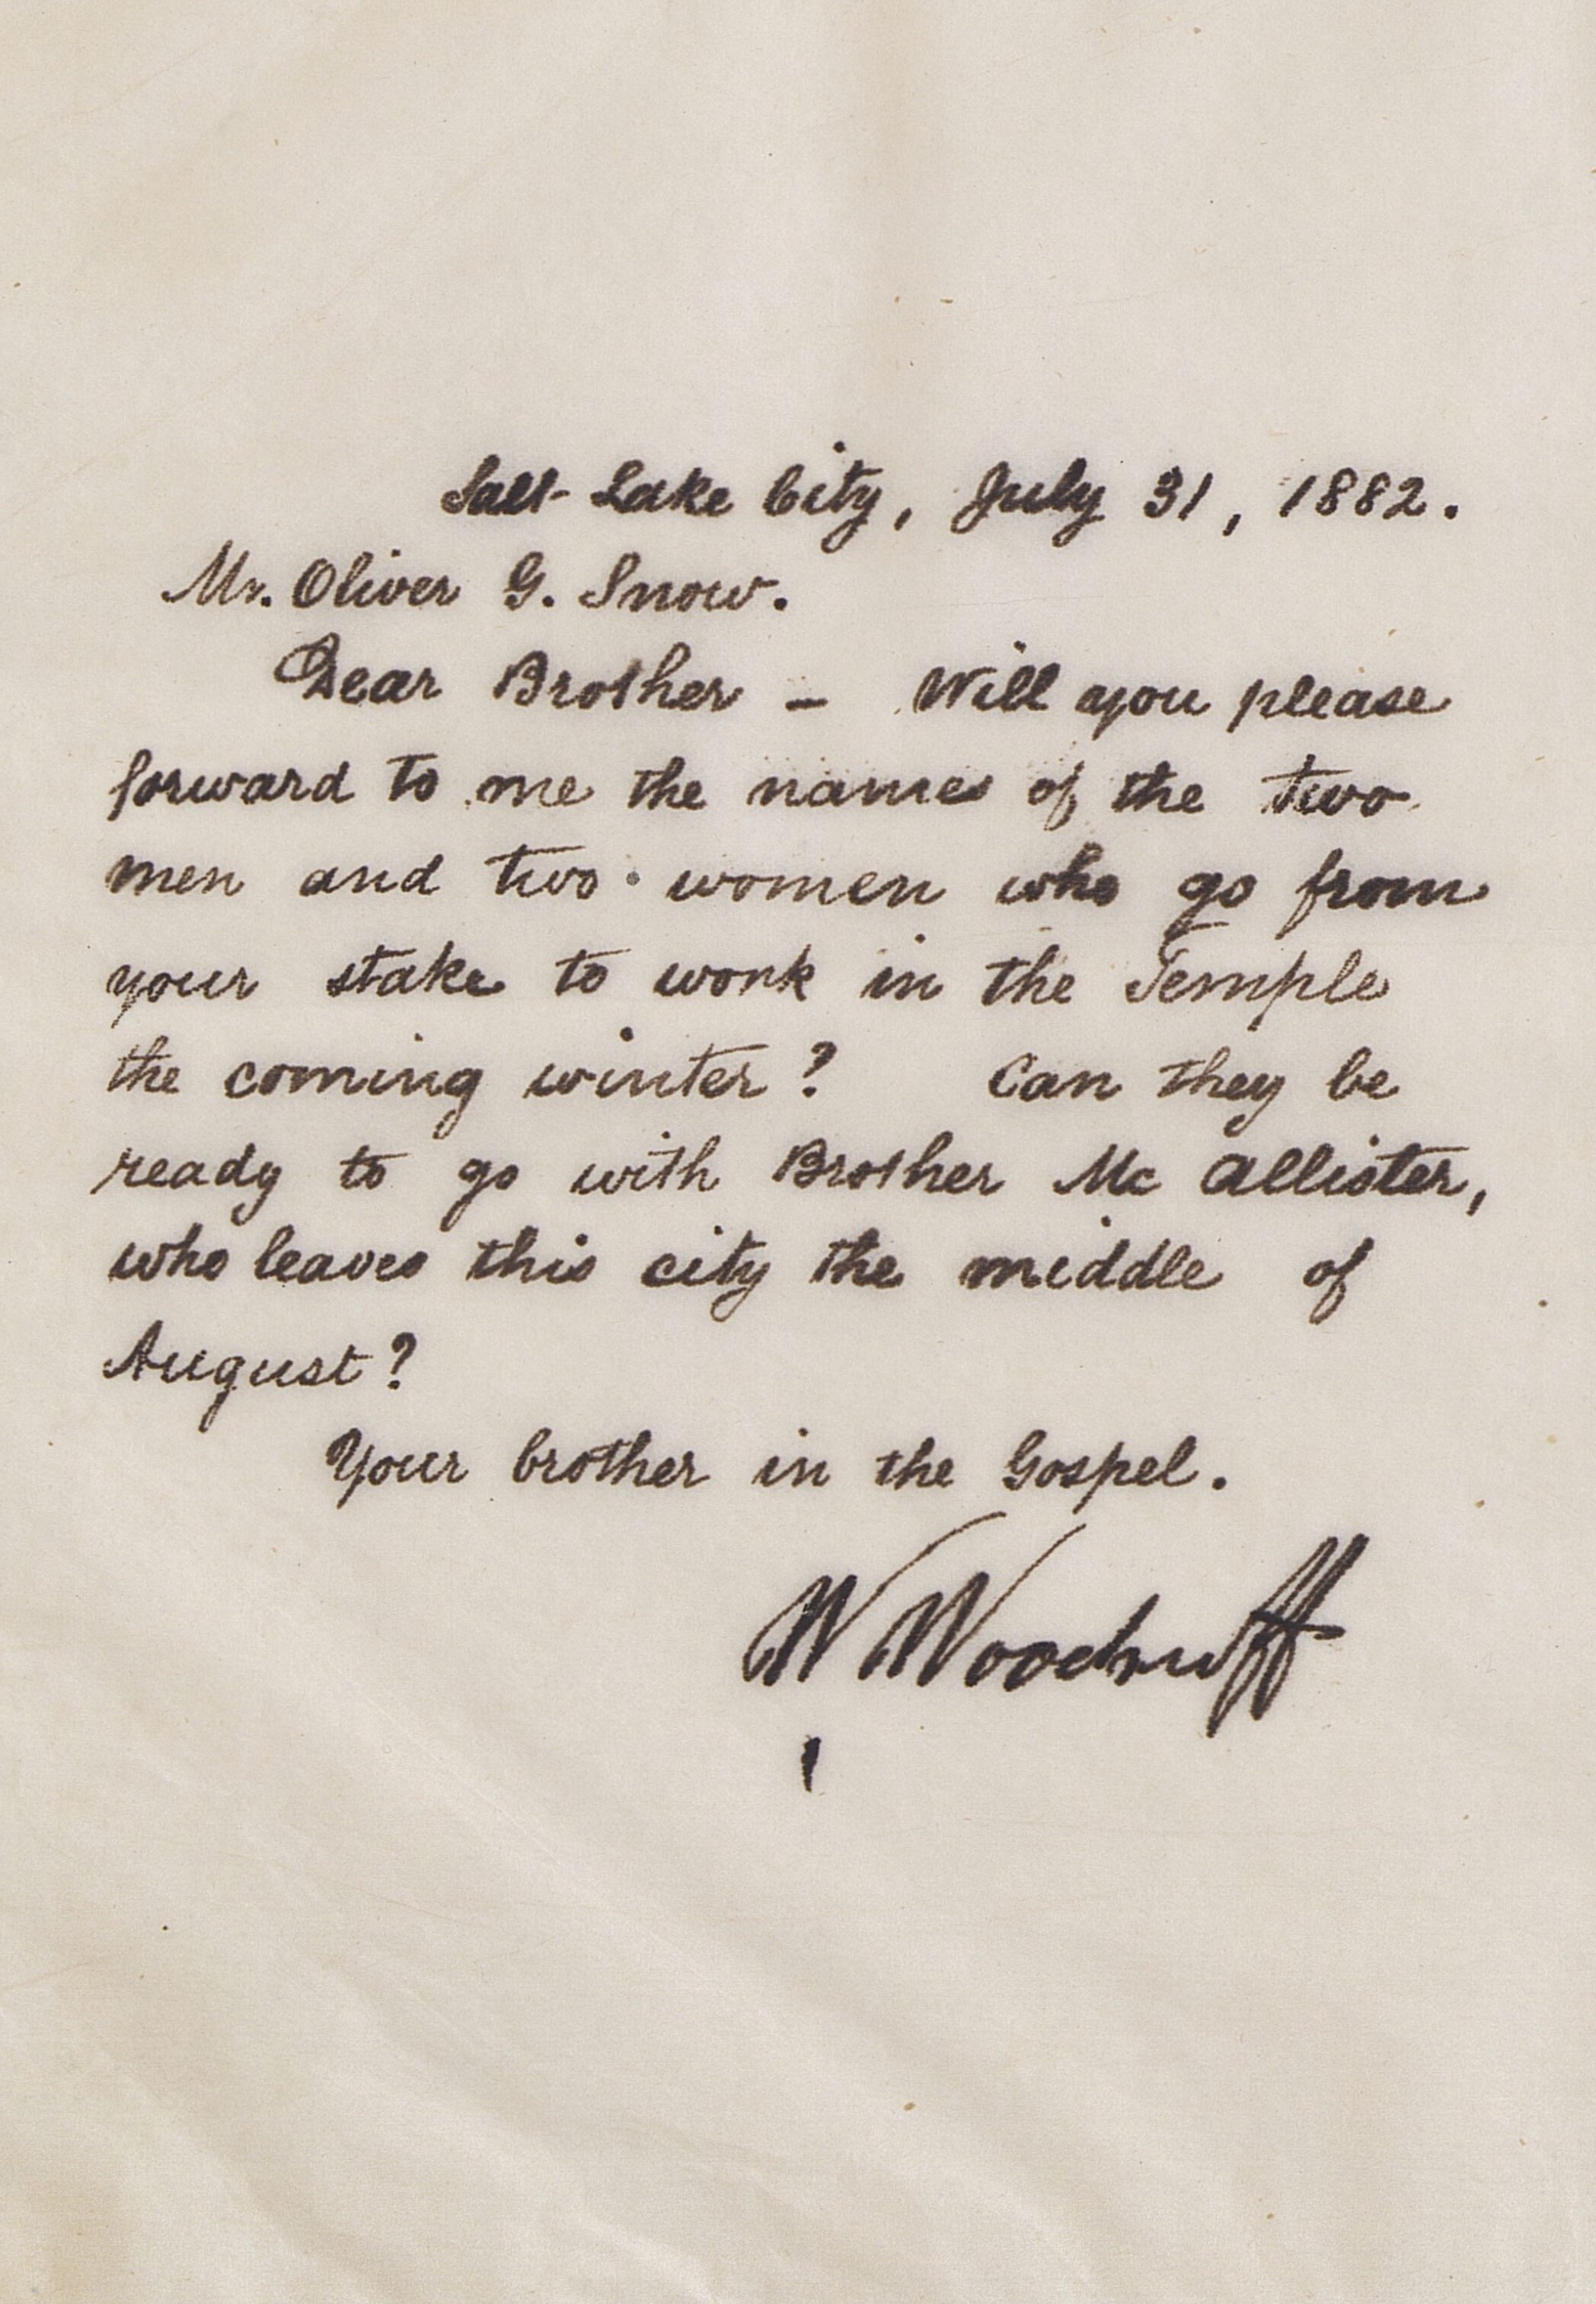 Salt Lake City, July 31, 1882.
Mr. Oliver G. Snow.
Dear Brother – Will you please
forward to me the names of the two
men and two women who go from
your stake to work in the Temple
the coming winter? Can they be
ready to go with Brother Mc Allister,
who leaves this city the middle of
August?
Your brother in the Gospel.
W Woodruff